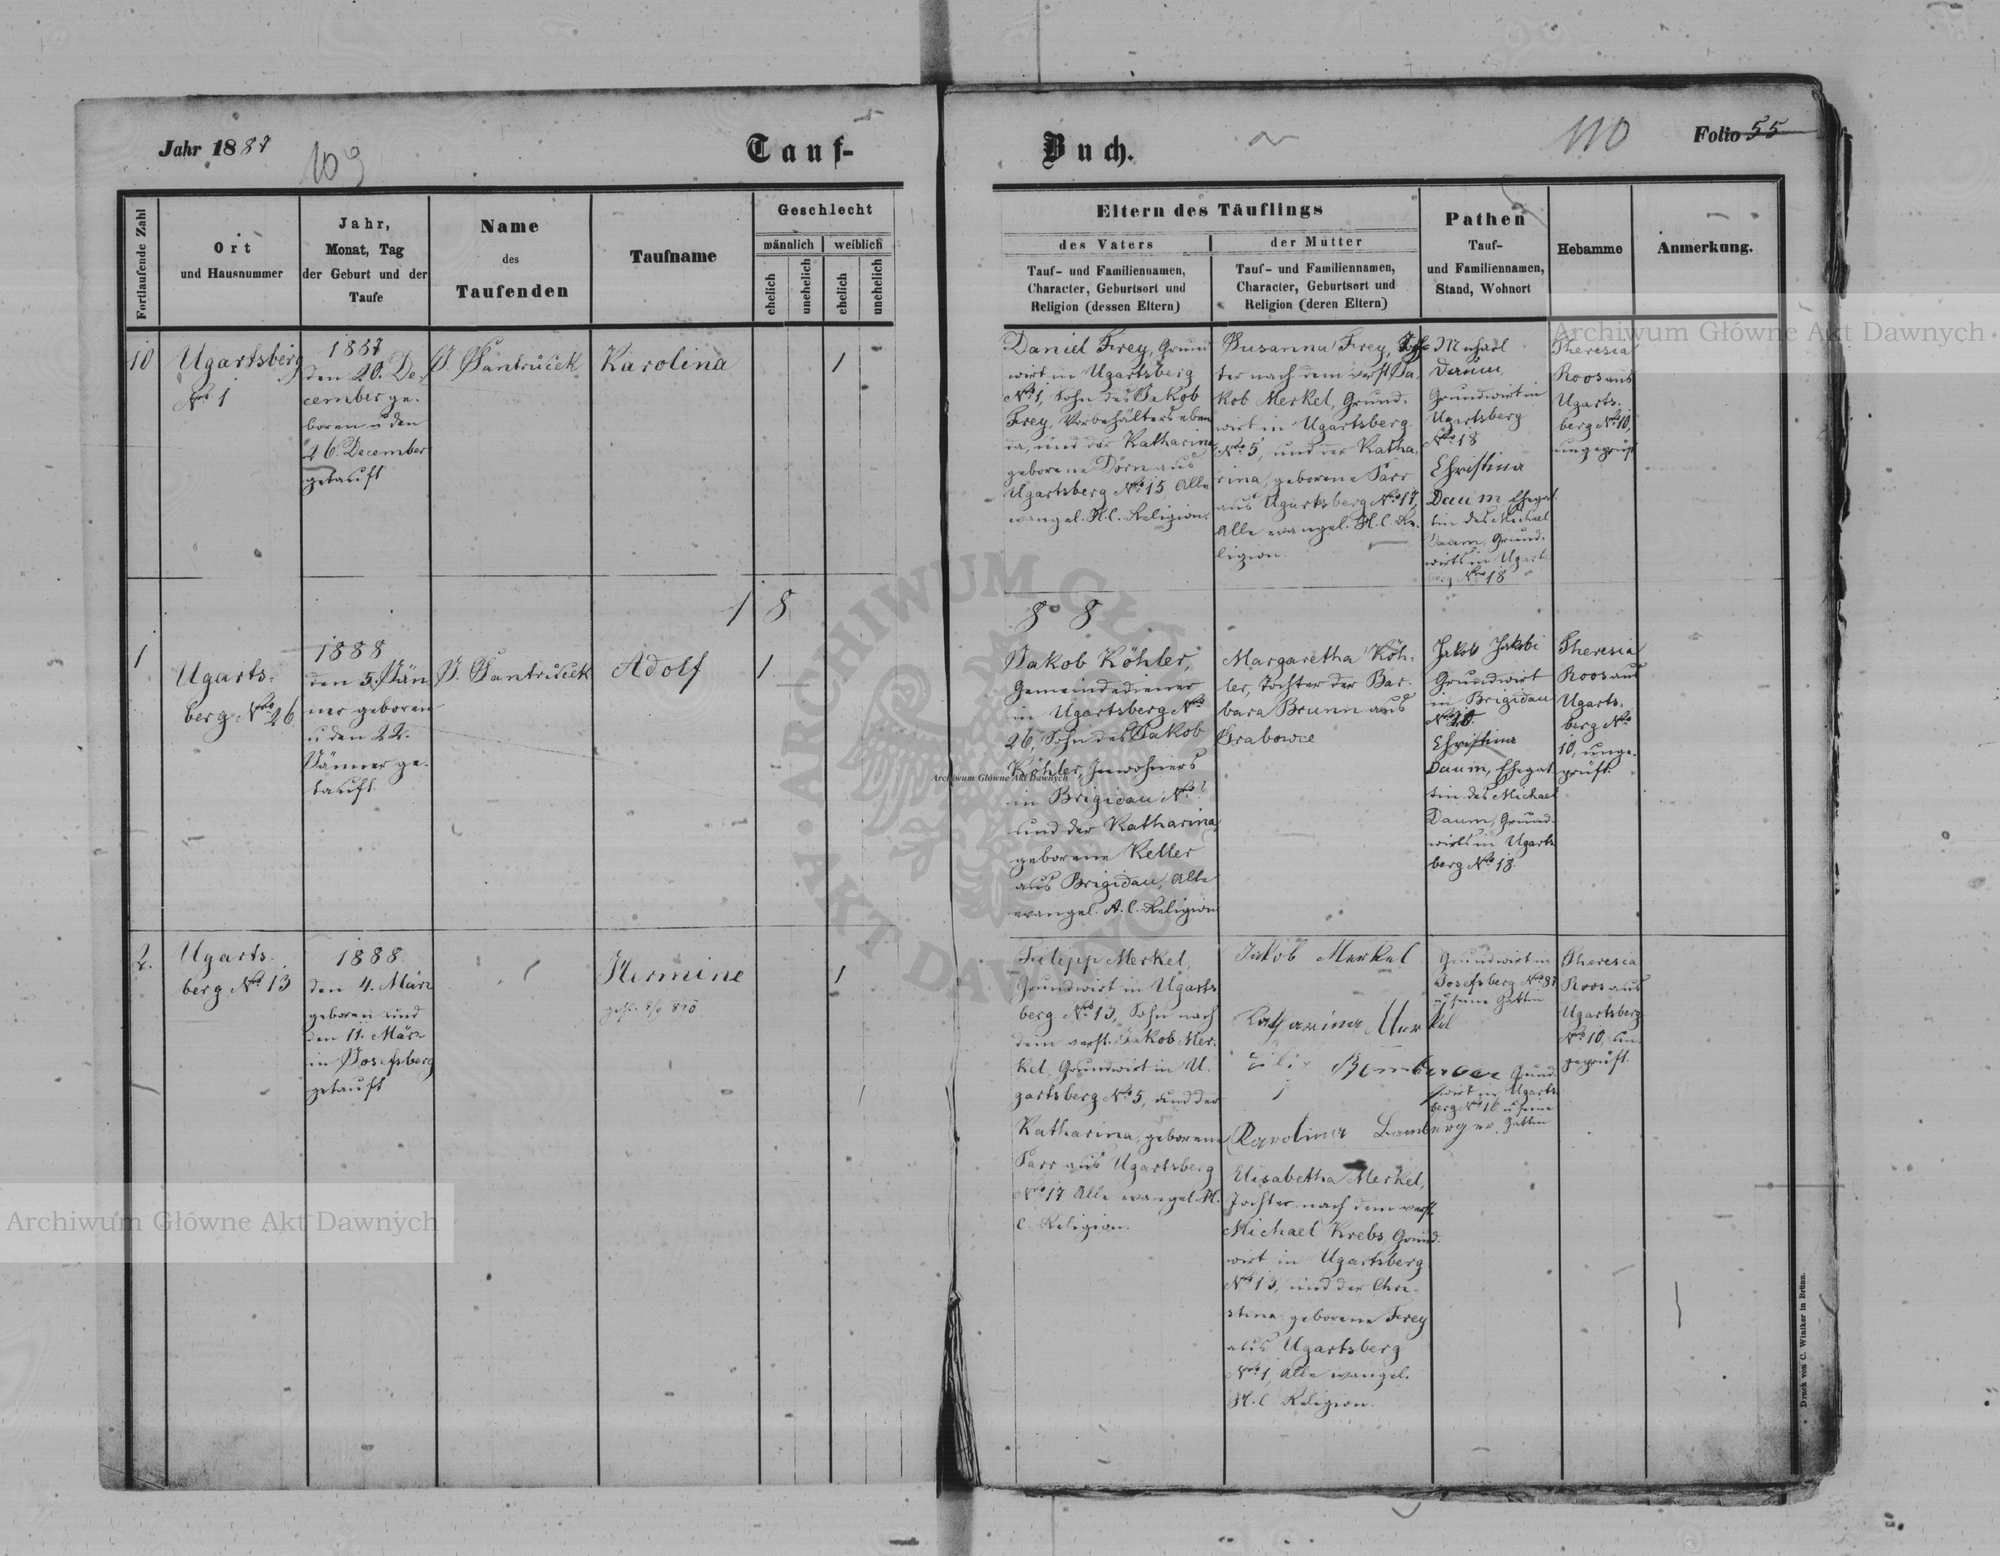 Jahr 1887
109
Tauf-
Buch.
110
Folio 55
Fortlaufende Zahl
Ort
und Hausnummer
Jahr,
Monat, Tag
der Geburt und der
Taufe
Name
des
Taufenden
Taufname
Geschlecht
männlich
weiblich
ehelich
unehelich
ehelich
unehelich
Eltern des Täuflings
des Vaters
Tauf- und Familiennamen,
Character, Geburtsort und
Religion (dessen Eltern)
der Mutter
Tauf- und Familiennamen,
Character, Geburtsort und
Religion (deren Eltern)
Pathen
Tauf-
und Familiennamen,
Stand, Wohnort
Hebamme
Anmerkung.
10
Ugartsberg
Nro 1
1887
den 20. De-
cember ge-
boren u den
26. December
getauft
J. Jantruček
Karolina
1
Daniel Frey, Grund
wirt in Ugartsberg
No 1, Sohn des Jakob
Frey, Vorbehälters eben
da, und der Katharina
geborene Dörn aus
Ugartsberg No 15 Alle
evangel. H.C. Religion.
Susanna Frey, Toch-
ter nach dem verst. Ja-
kob Merkel, Grund-
wirt in Ugartsberg
No 5, und der Katha-
rina, geborene Sarr
aus Ugartsberg No 17,
Alle evangel. H.C. Re-
ligion.
Michael
Daum,
Grundwirt in
Ugartsberg
Nro 18
Christina
Daum Ehegat
tin des Michael
Daum, Grund-
wirts in Ugarts
berg Nro 18
Theresia
Roos aus
Ugarts-
berg No 10,
ungeprüft
1 8
8 8
1
Ugarts-
berg Nro 26
1888
den 5. Jän
ner geboren
u den 22.
Jänner ge-
tauft.
J. Jantruček
Adolf
1
Jakob Köhler,
Gemeindediener
in Ugartsberg No
26, Sohn des Jakob
Köhler, Inwohners
in Brigidau No ?
und der Katharina,
geborene Keller
aus Brigidau, Alle
evangel. A.C. Religion
Margaretha Köh-
ler, Tochter der Bar-
bara Brunn aus
Grabowce
Jakob Jakobi
Grundwirt
in Brigidau
No 20.
Christina
Daum, Ehegat
tin des Michael
Daum, Grund-
wirts in Ugarts
berg No 18.
Theresia
Roos aus
Ugarts-
berg No
10, unge-
prüft.
2.
Ugarts-
berg No 13
1888
den 4. März
geboren und
den 11. März
in Josefsberg
getauft
Hermine
1
Filipp Merkel,
Grundwirt in Ugarts
berg No 13, Sohn nach
dem verst. Jakob Mer-
kel, Grundwirt in U-
gartsberg No 5, und der
Katharina, geborene
Sarr aus Ugartsberg
No 17 Alle evangel. H.
C. Religion.
Jakob Merkel
Katharina Merkel
Karolina Bamberger
Elisabetha Merkel,
Tochter nach dem verst.
Michael Krebs, Grund-
wirt in Ugartsberg
No 13, und der Chri-
stina geborene Frey
aus Ugartsberg
No 1, Alle evangel.
H.C. Religion.
Grundwirt in
Josefsberg No 87
u seine Gattin
Grund-
wirt in Ugarts-
berg No 16 u seine
Gattin
Theresia
Roos aus
Ugartsberg
No 10, un-
geprüft.
Druck von C. Winiker in Brünn.
Archiwum Główne Akt Dawnych
Archiwum Główne Akt Dawnych
Archiwum Główne Akt Dawnych
ARCHIWUM GŁÓWNE AKT DAWNYCH